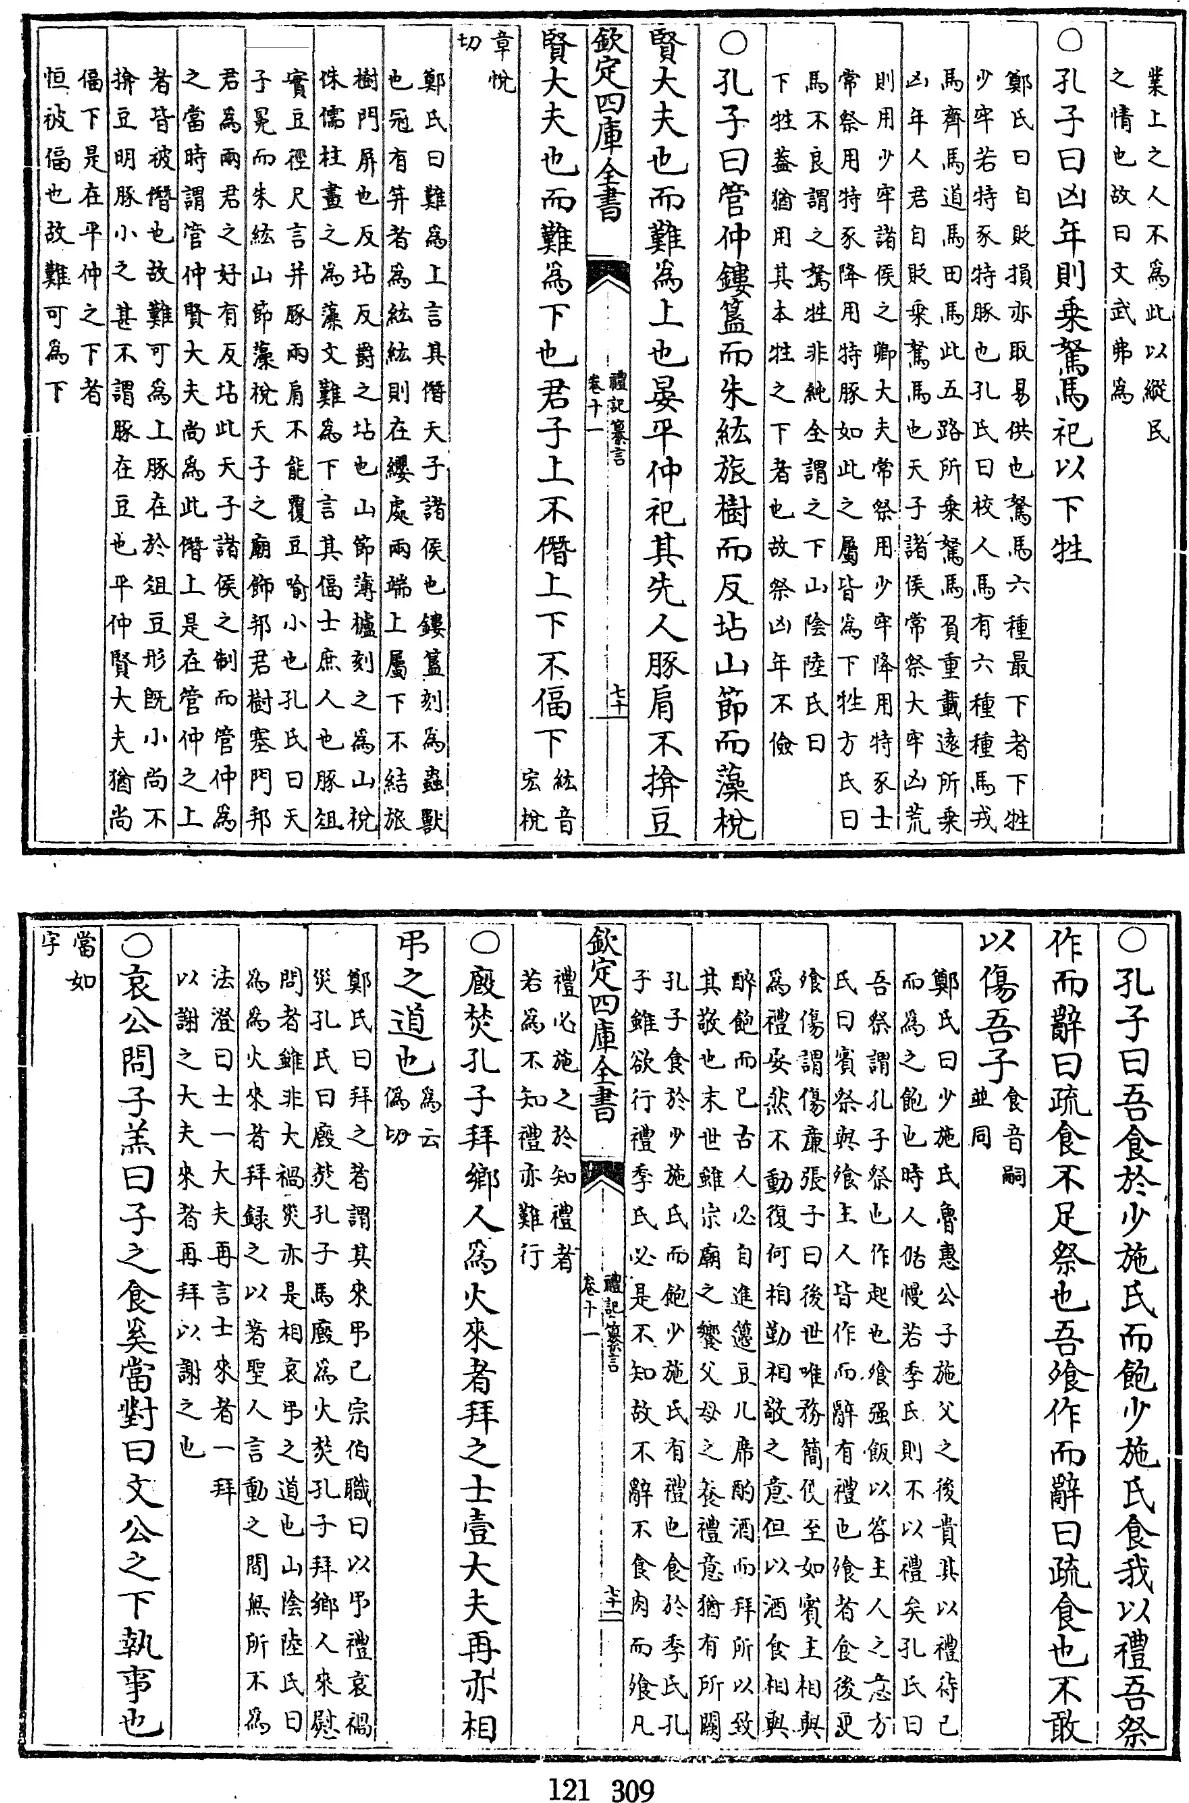 業上之人不為此以縱民
之情也故曰文武弗為
○孔子曰凶年則乗駑馬祀以下牲
鄭氏曰自貶損亦取易供也駑馬六種最下者下牲
少牢若特豕特豚也孔氏曰校人馬有六種種馬戎
馬齊馬道馬田馬此五路所乗駑馬負重載逺所乗
凶年人君自貶乗駑馬也天子諸侯常祭大牢凶荒
則用少牢諸侯之卿大夫常祭用少牢降用特豕士
常祭用特豕降用特豚如此之屬皆為下牲方氏曰
馬不良謂之駑牲非純全謂之下山陰陸氏曰
下牲葢猶用其本牲之下者也故祭凶年不儉
○孔子曰管仲鏤簋而朱紘旅樹而反坫山節而藻梲
賢大夫也而難為上也晏平仲祀其先人豚肩不揜豆
欽定四庫全書
禮記纂言
卷十一
七十
賢大夫也而難為下也君子上不僭上下不偪下
紘音
宏梲
章悅
切
鄭氏曰難為上言其僭天子諸侯也鏤簋刻為蟲獸
也冠有笄者為紘紘則在纓處兩端上屬下不結旅
樹門屏也反坫反爵之坫也山節薄櫨刻之為山梲
侏儒柱畫之為藻文難為下言其偪士庶人也豚俎
實豆徑尺言并豚兩肩不能覆豆喻小也孔氏曰天
子冕而朱紘山節藻梲天子之廟飾邦君樹塞門邦
君為兩君之好有反坫此天子諸侯之制而管仲為
之當時謂管仲賢大夫尚為此僭上是在管仲之上
者皆被僭也故難可為上豚在於俎豆形既小尚不
揜豆明豚小之甚不謂豚在豆也平仲賢大夫猶尚
偪下是在平仲之下者
恒被偪也故難可為下
○孔子曰吾食於少施氏而飽少施氏食我以禮吾祭
作而辭曰疏食不足祭也吾飱作而辭曰疏食也不敢
以傷吾子
食音嗣
並同
鄭氏曰少施氏魯惠公子施父之後貴其以禮待己
而為之飽也時人倨慢若季氏則不以禮矣孔氏曰
吾祭謂孔子祭也作起也飱强飯以答主人之意方
氏曰賓祭與飱主人皆作而辭有禮也飱者食後更
飱傷謂傷亷張子曰後世唯務簡便至如賓主相與
為禮妥然不動復何相勤相敬之意但以酒食相與
醉飽而已古人必自進籩豆几席酌酒而拜所以致
其敬也末世雖宗廟之饗父母之養禮意猶有所闕
孔子食於少施氏而飽少施氏有禮也食於季氏孔
子雖欲行禮季氏必是不知故不辭不食肉而飱凡
欽定四庫全書
禮記纂言
卷十一
七十一
禮必施之於知禮者
若為不知禮亦難行
○廏焚孔子拜鄉人為火來者拜之士壹大夫再亦相
弔之道也
為云
偽切
鄭氏曰拜之者謂其來弔已宗伯職曰以弔禮哀禍
災孔氏曰廏焚孔子馬廏為火焚孔子拜鄉人來慰
問者雖非大禍災亦是相哀弔之道也山陰陸氏曰
為為火來者拜録之以著聖人言動之間無所不為
法澄曰士一大夫再言士來者一拜
以謝之大夫來者再拜以謝之也
○哀公問子羔曰子之食奚當對曰文公之下執事也
當如
字
121 309